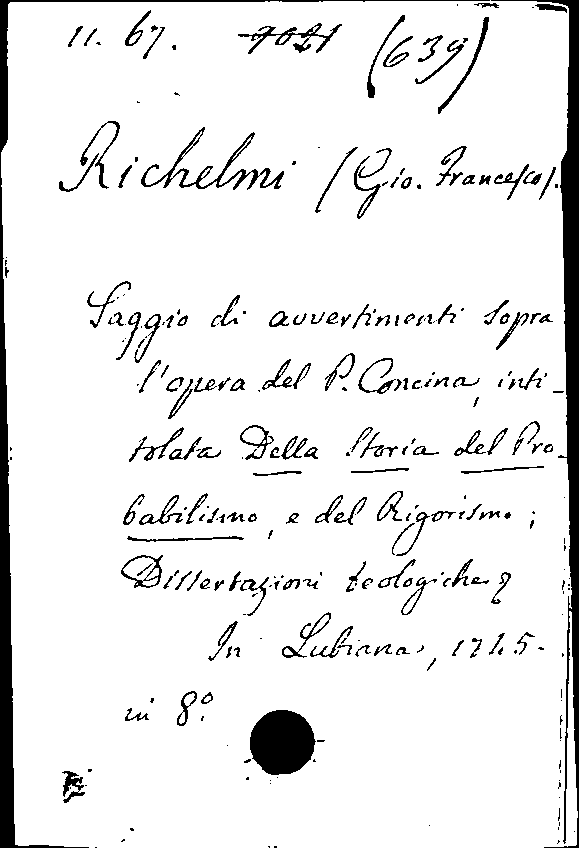 11. 67. 7021 (639)
Richelmi (Gio. Francesco).
Saggio di avvertimenti sopra
l'opera del P. Concina, inti-
tolata Della Storia del Pro-
babilismo, e del Rigorismo;
Dissertazioni teologiche
In Lubiana, 1745-
in 8º.